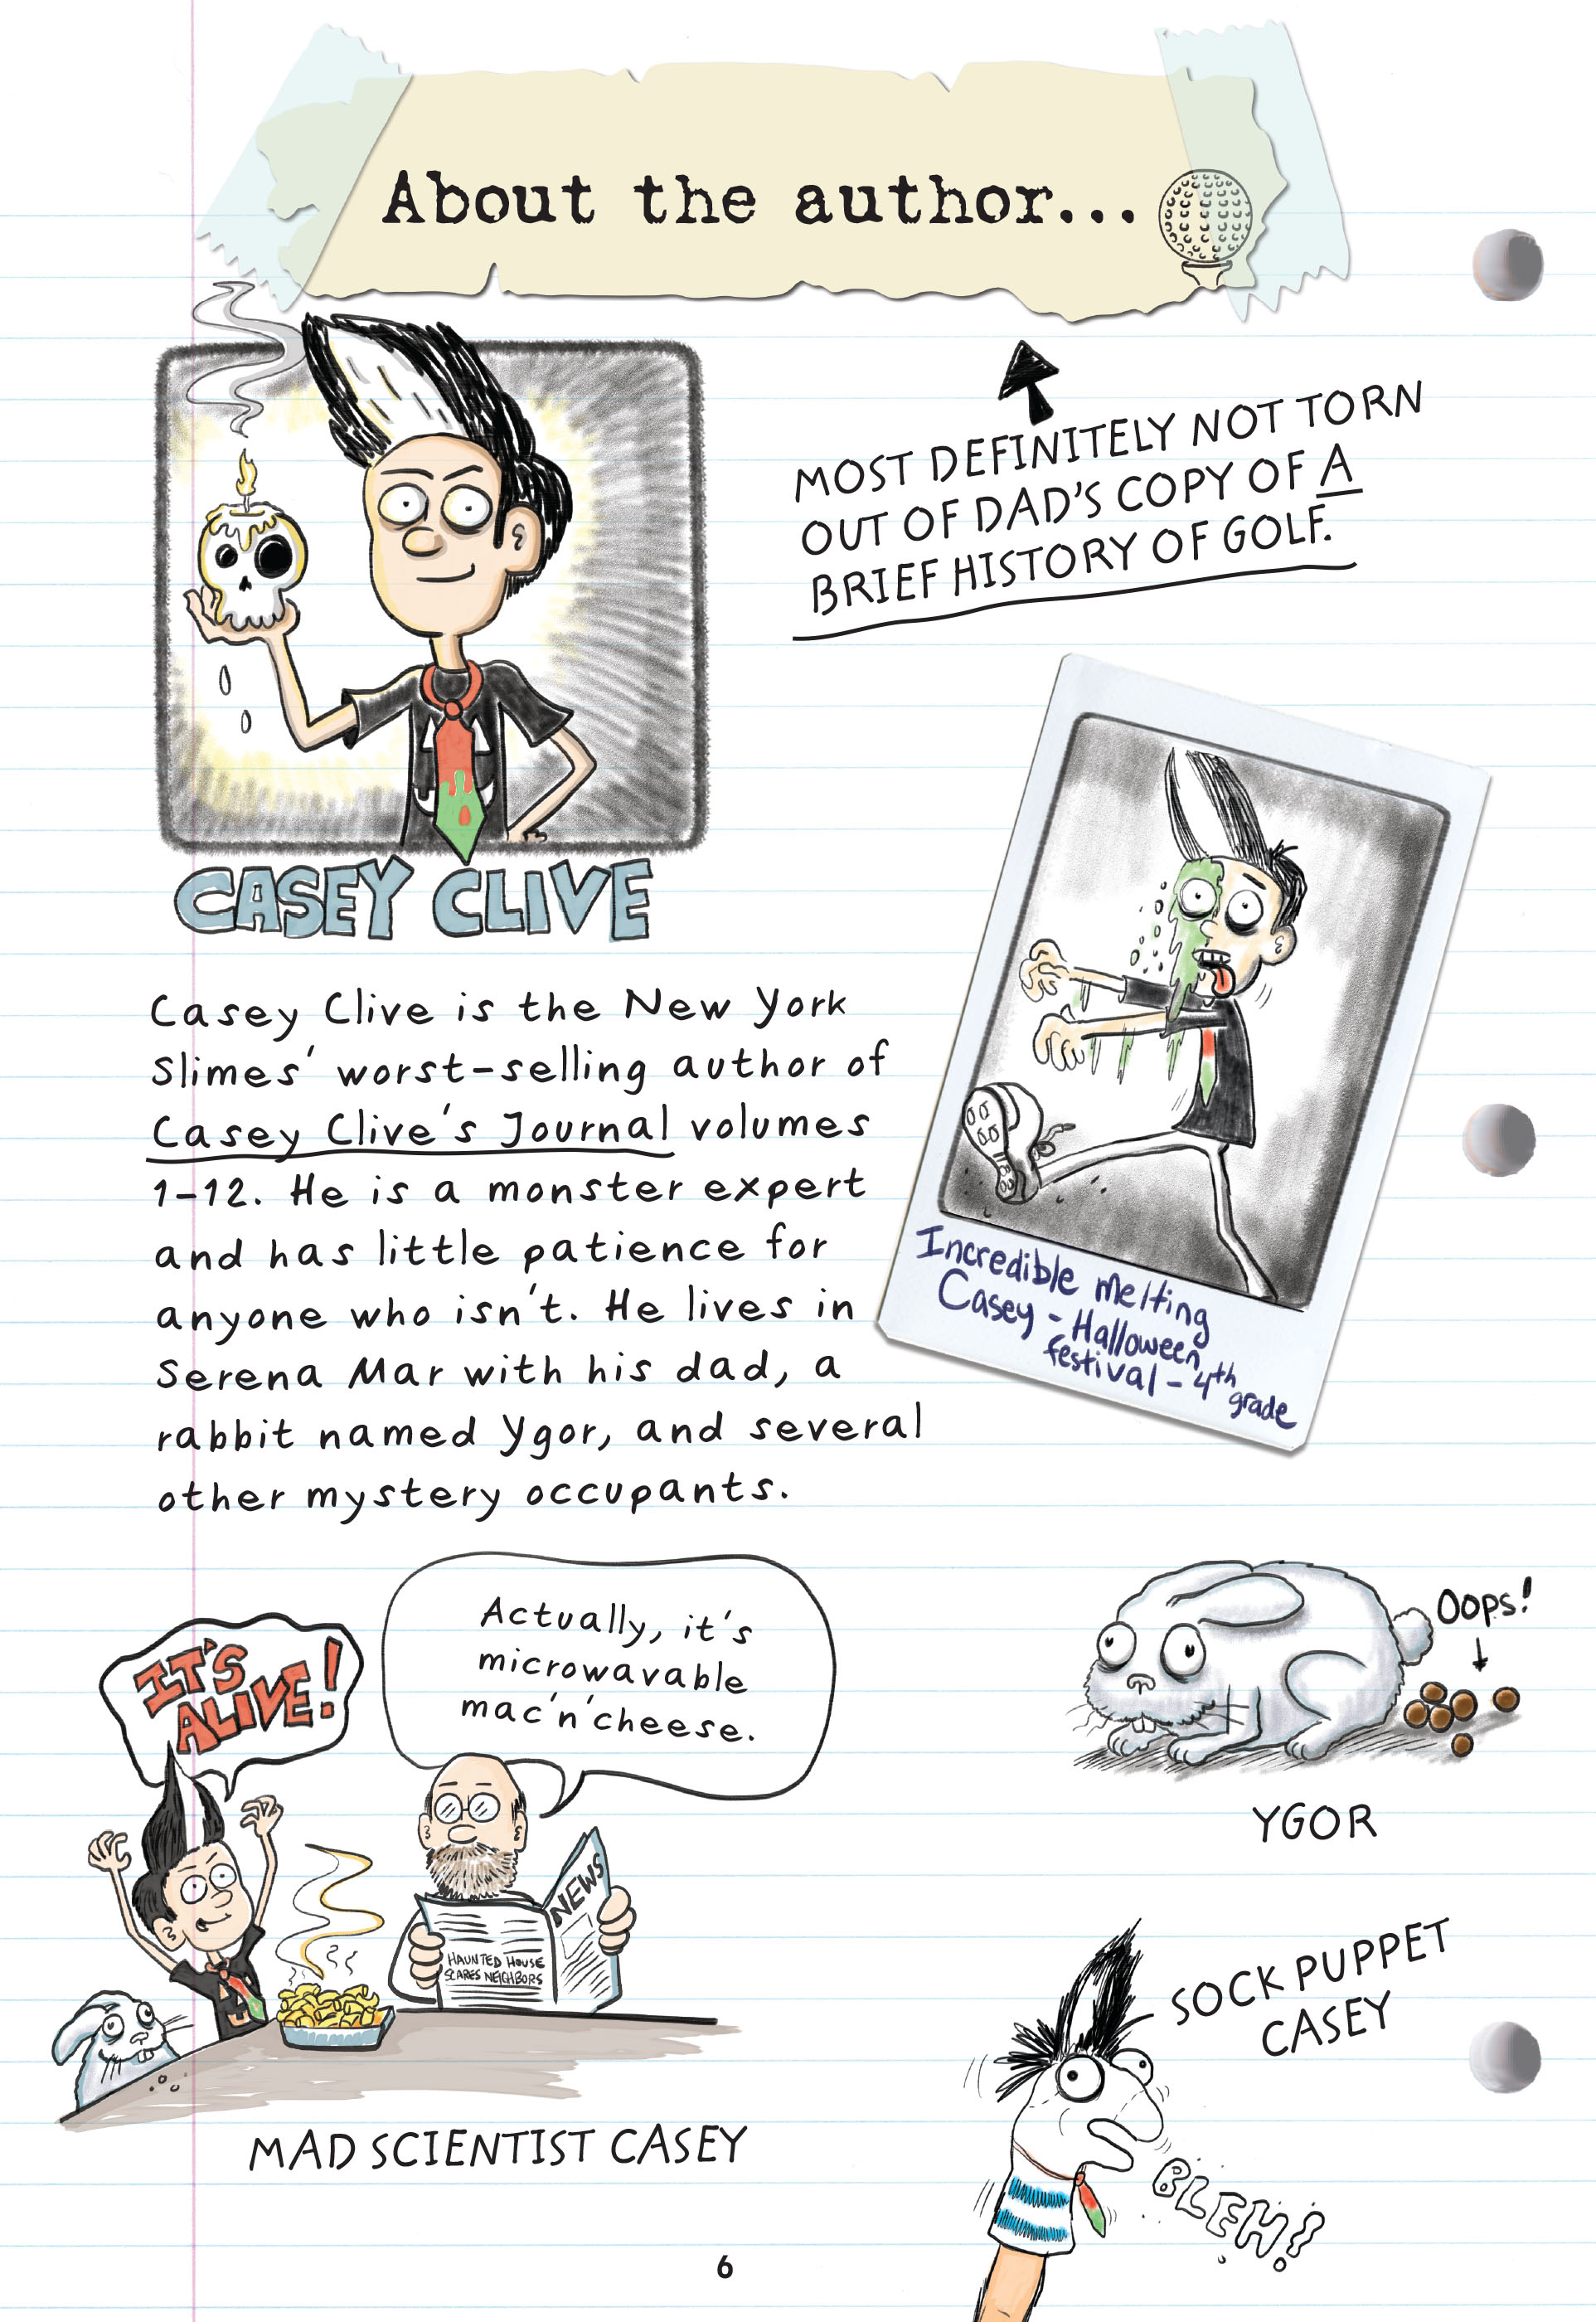 About the author...
MOST DEFINITELY NOT TORN
OUT OF DAD'S COPY OF A
BRIEF HISTORY OF GOLF.
CASEY CLIVE
Casey Clive is the New York
Slimes' worst-selling author of
Casey Clive's Journal volumes
1-12. He is a monster expert
and has little patience for
anyone who isn't. He lives in
Serena Mar with his dad, a
rabbit named Ygor, and several
other mystery occupants.
Incredible melting
Casey - Halloween
festival - 4th
grade
IT'S
ALIVE!
Actually, it's
microwavable
mac'n'cheese.
NEWS
HAUNTED HOUSE
SCARES NEIGHBORS
MAD SCIENTIST CASEY
Oops!
YGOR
SOCK PUPPET
CASEY
BLEH!
6